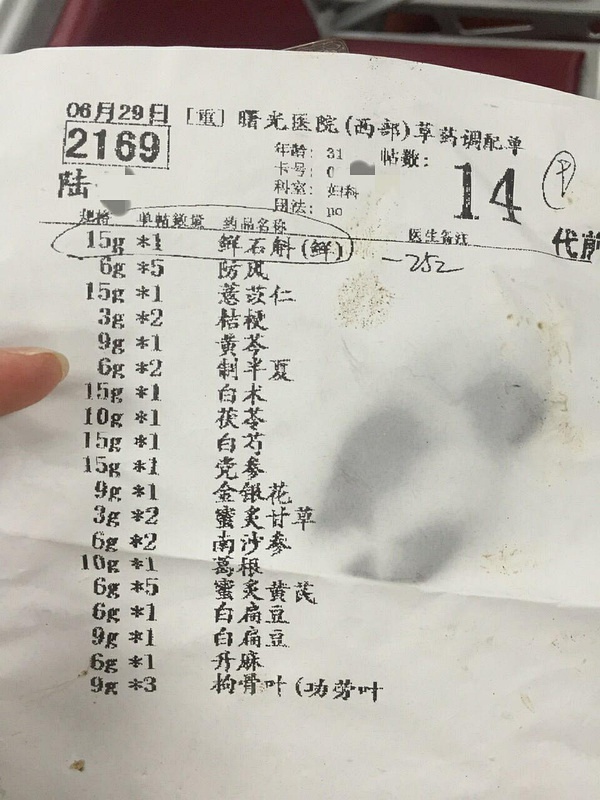 06月29日 [重] 曙光医院(西部)草药调配单
2169 年龄: 31 帖数: 14
卡号: 0
陆 科室: 妇科
用法: no
规格 单帖数量 药品名称 医生备注 代煎
15g *1 鲜石斛(鲜) -252
6g *5 防风
15g *1 薏苡仁
3g *2 桔梗
9g *1 黄芩
6g *2 制半夏
15g *1 白术
10g *1 茯苓
15g *1 白芍
15g *1 党参
9g *1 金银花
3g *2 蜜炙甘草
6g *2 南沙参
10g *1 葛根
6g *5 蜜炙黄芪
6g *1 白扁豆
9g *1 白扁豆
6g *1 升麻
9g *3 枸骨叶(功劳叶